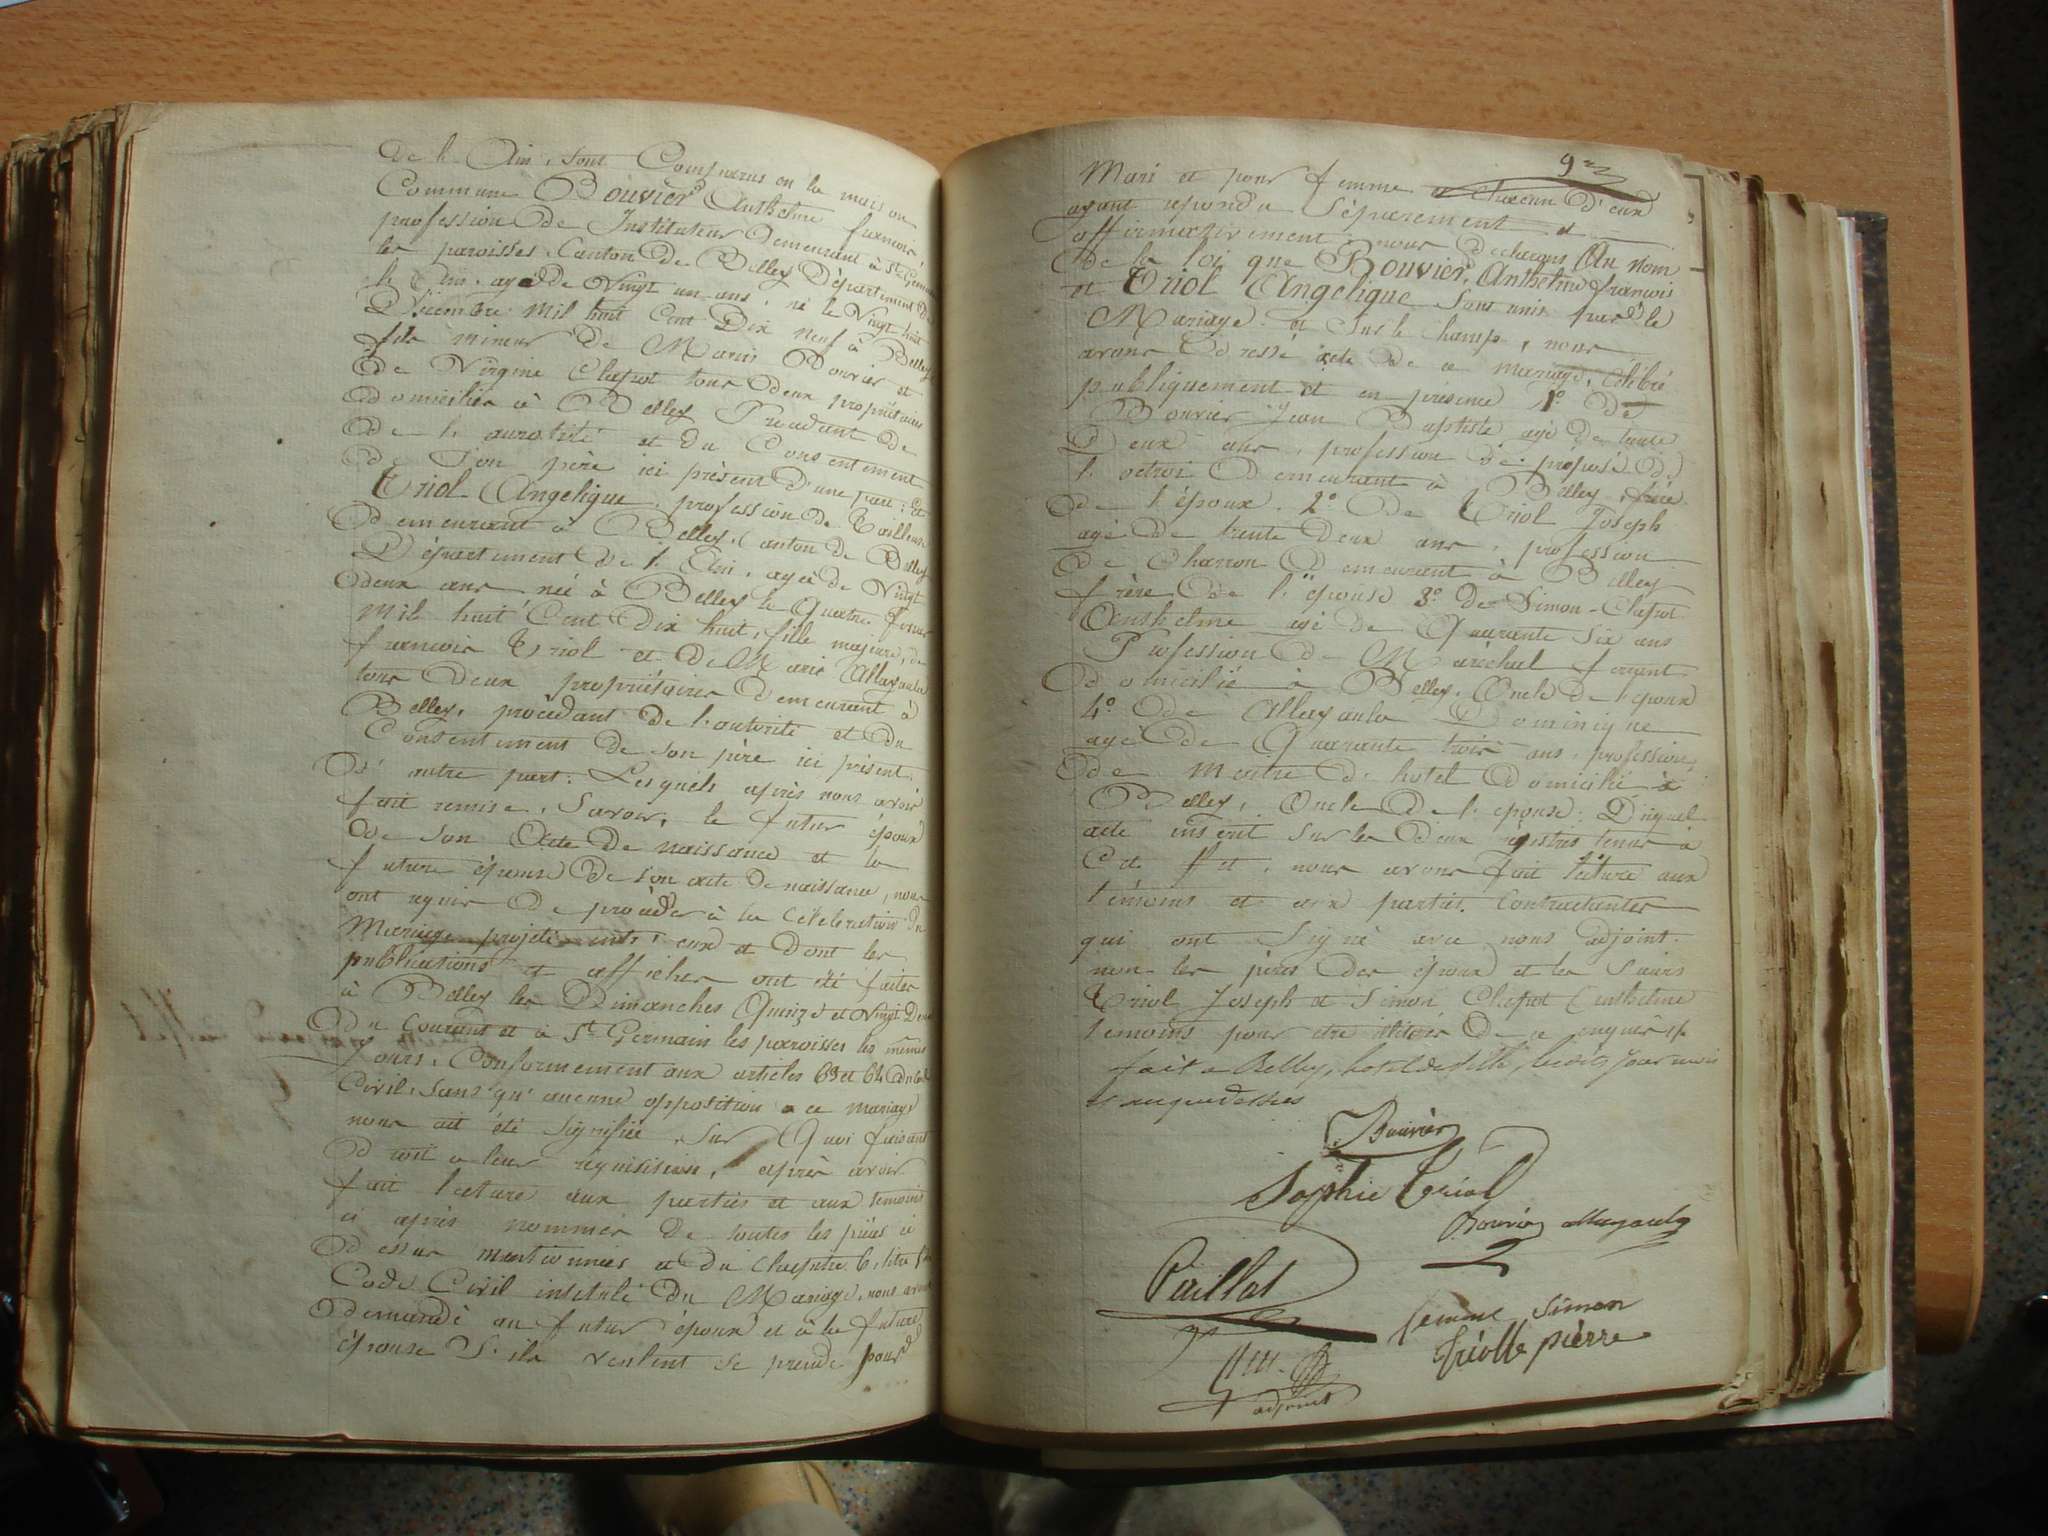 de l'Ain, sont Comparus en la maison
Commune Bouvier Anthelme francois
profession de Instituteur demeurant à St Germain
les paroisses, Canton de Belley Département de
l'Ain, agé de Vingt un ans, né le Vingt huit
Décembre mil huit Cent Dix neuf à Belley
fils mineur de Marin Bouvier et
de Virgine Chapot tous deux propriétaires
domiciliés à Belley Procédant de
de l'autorité et du Consentement
de Son père ici présent d'une part; Et
Triol Angelique, profession de Tailleuse
demeurant à Belley, Canton de Belley
Département de l'Ain, agée de Vingt
deux ans née à Belley le Quatre
mil huit Cent Dix huit, fille majeure, de
francois Triol et de Marie Allagauta
tous deux propriétaires demeurant à
Belley, procèdant de l'autorité et du
Consentement de son père ici présent
d'autre part. Lesquels après nous avoir
fait remise, Savoir, le futur époux
de son Acte de naissance et la
future épouse de son acte de naissance, nous
ont requis de procèder à la Célebration du
Mariage projeté entr'eux et dont les
publications et affiches ont été faites
à Belley les Dimanches Quinze et vingt Deux
du Courant et à St Germain les paroisses les mêmes
Jours, Conformement aux articles 63 et 64 du Code
Civil, sans qu'aucune opposition a ce mariage
nous ait été Signifiée, Sur Quoi faisant
droit a leur réquisition, après avoir
fait lecture aux parties et aux temoins
ci après nommés de toutes les pièces ci
dessus mentionnées et du Chapitre 6, titre 5 du
Code Civil intitulé du Mariage, nous avons
demandé au futur époux et à la future
épouse S'ils veulent se prendre pour
9
Mari et pour femme et Chacun d'eux
ayant repondu Séparement et
affirmativement, nous declarons Au nom
de la loi que Bouvier, Anthelme francois
et Triol Angelique Sont unis par le
Mariage et Sur le Champ, nous
avons Dressé acte de ce mariage, Célébré
publiquement et en présence 1° De
Bouvier Jean Baptiste agé de trente
Deux ans, profession de préposé de
l'octroi demeurant à Belley, frère
de l'époux. 2° de Triol Joseph
agé de trente deux ans, profession
de Charron demeurant à Belley
frère de l'épouse 3° de Simon-Chapot
Anthelme agé de Quarante Six ans
Profession de Maréchal ferrant
domicilié à Belley, Oncle de l'époux
4° de Allagauta Dominique
agé de Quarante trois ans, profession
de maitre d'hotel domicilié à
Belley, Oncle de l'épouse; Duquel
acte inscrit sur les deux régistres tenus à
Cet Effet, nous avons fait lecture aux
témoins et aux parties Contractantes
qui ont Signé avec nous adjoint.
non les pères des époux et les Sieurs
Triol Joseph et Simon Chapot Anthelme
temoins pour être illitérés de ce enquis /.
fait a Belley, hotel de Ville, lesdits jour mois
et an que dessus
Bouvier
Sophie Triol
Bouvier allagauta
Paillat
femme Simon
Triolle pièrre
adjoint